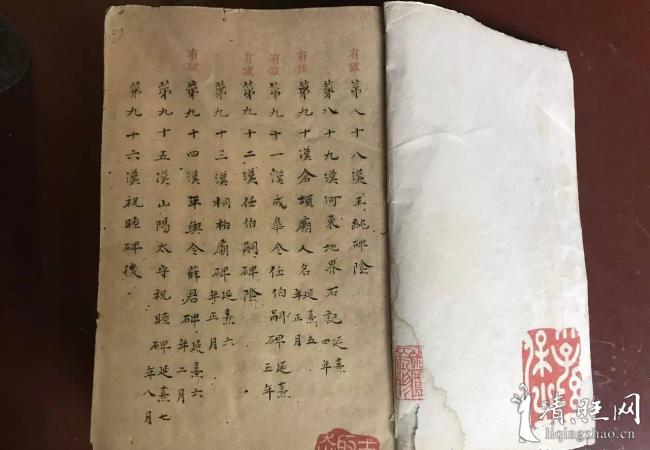 有跋
第八十八漢王純碑陰
第八十九漢河東地界石記延熹四年
有跋
第九十漢倉頡廟人名延熹五年正月
有跋
第九十一漢成皋令任伯嗣碑延熹五年
有跋
第九十二漢任伯嗣碑陰
第九十三漢桐柏廟碑延熹六年正月
有跋
第九十四漢平輿令薛君碑延熹六年二月
第九十五漢山陽太守祝睦碑延熹七年八月
第九十六漢祝睦碑後
清旺网
liqingzhao.cn